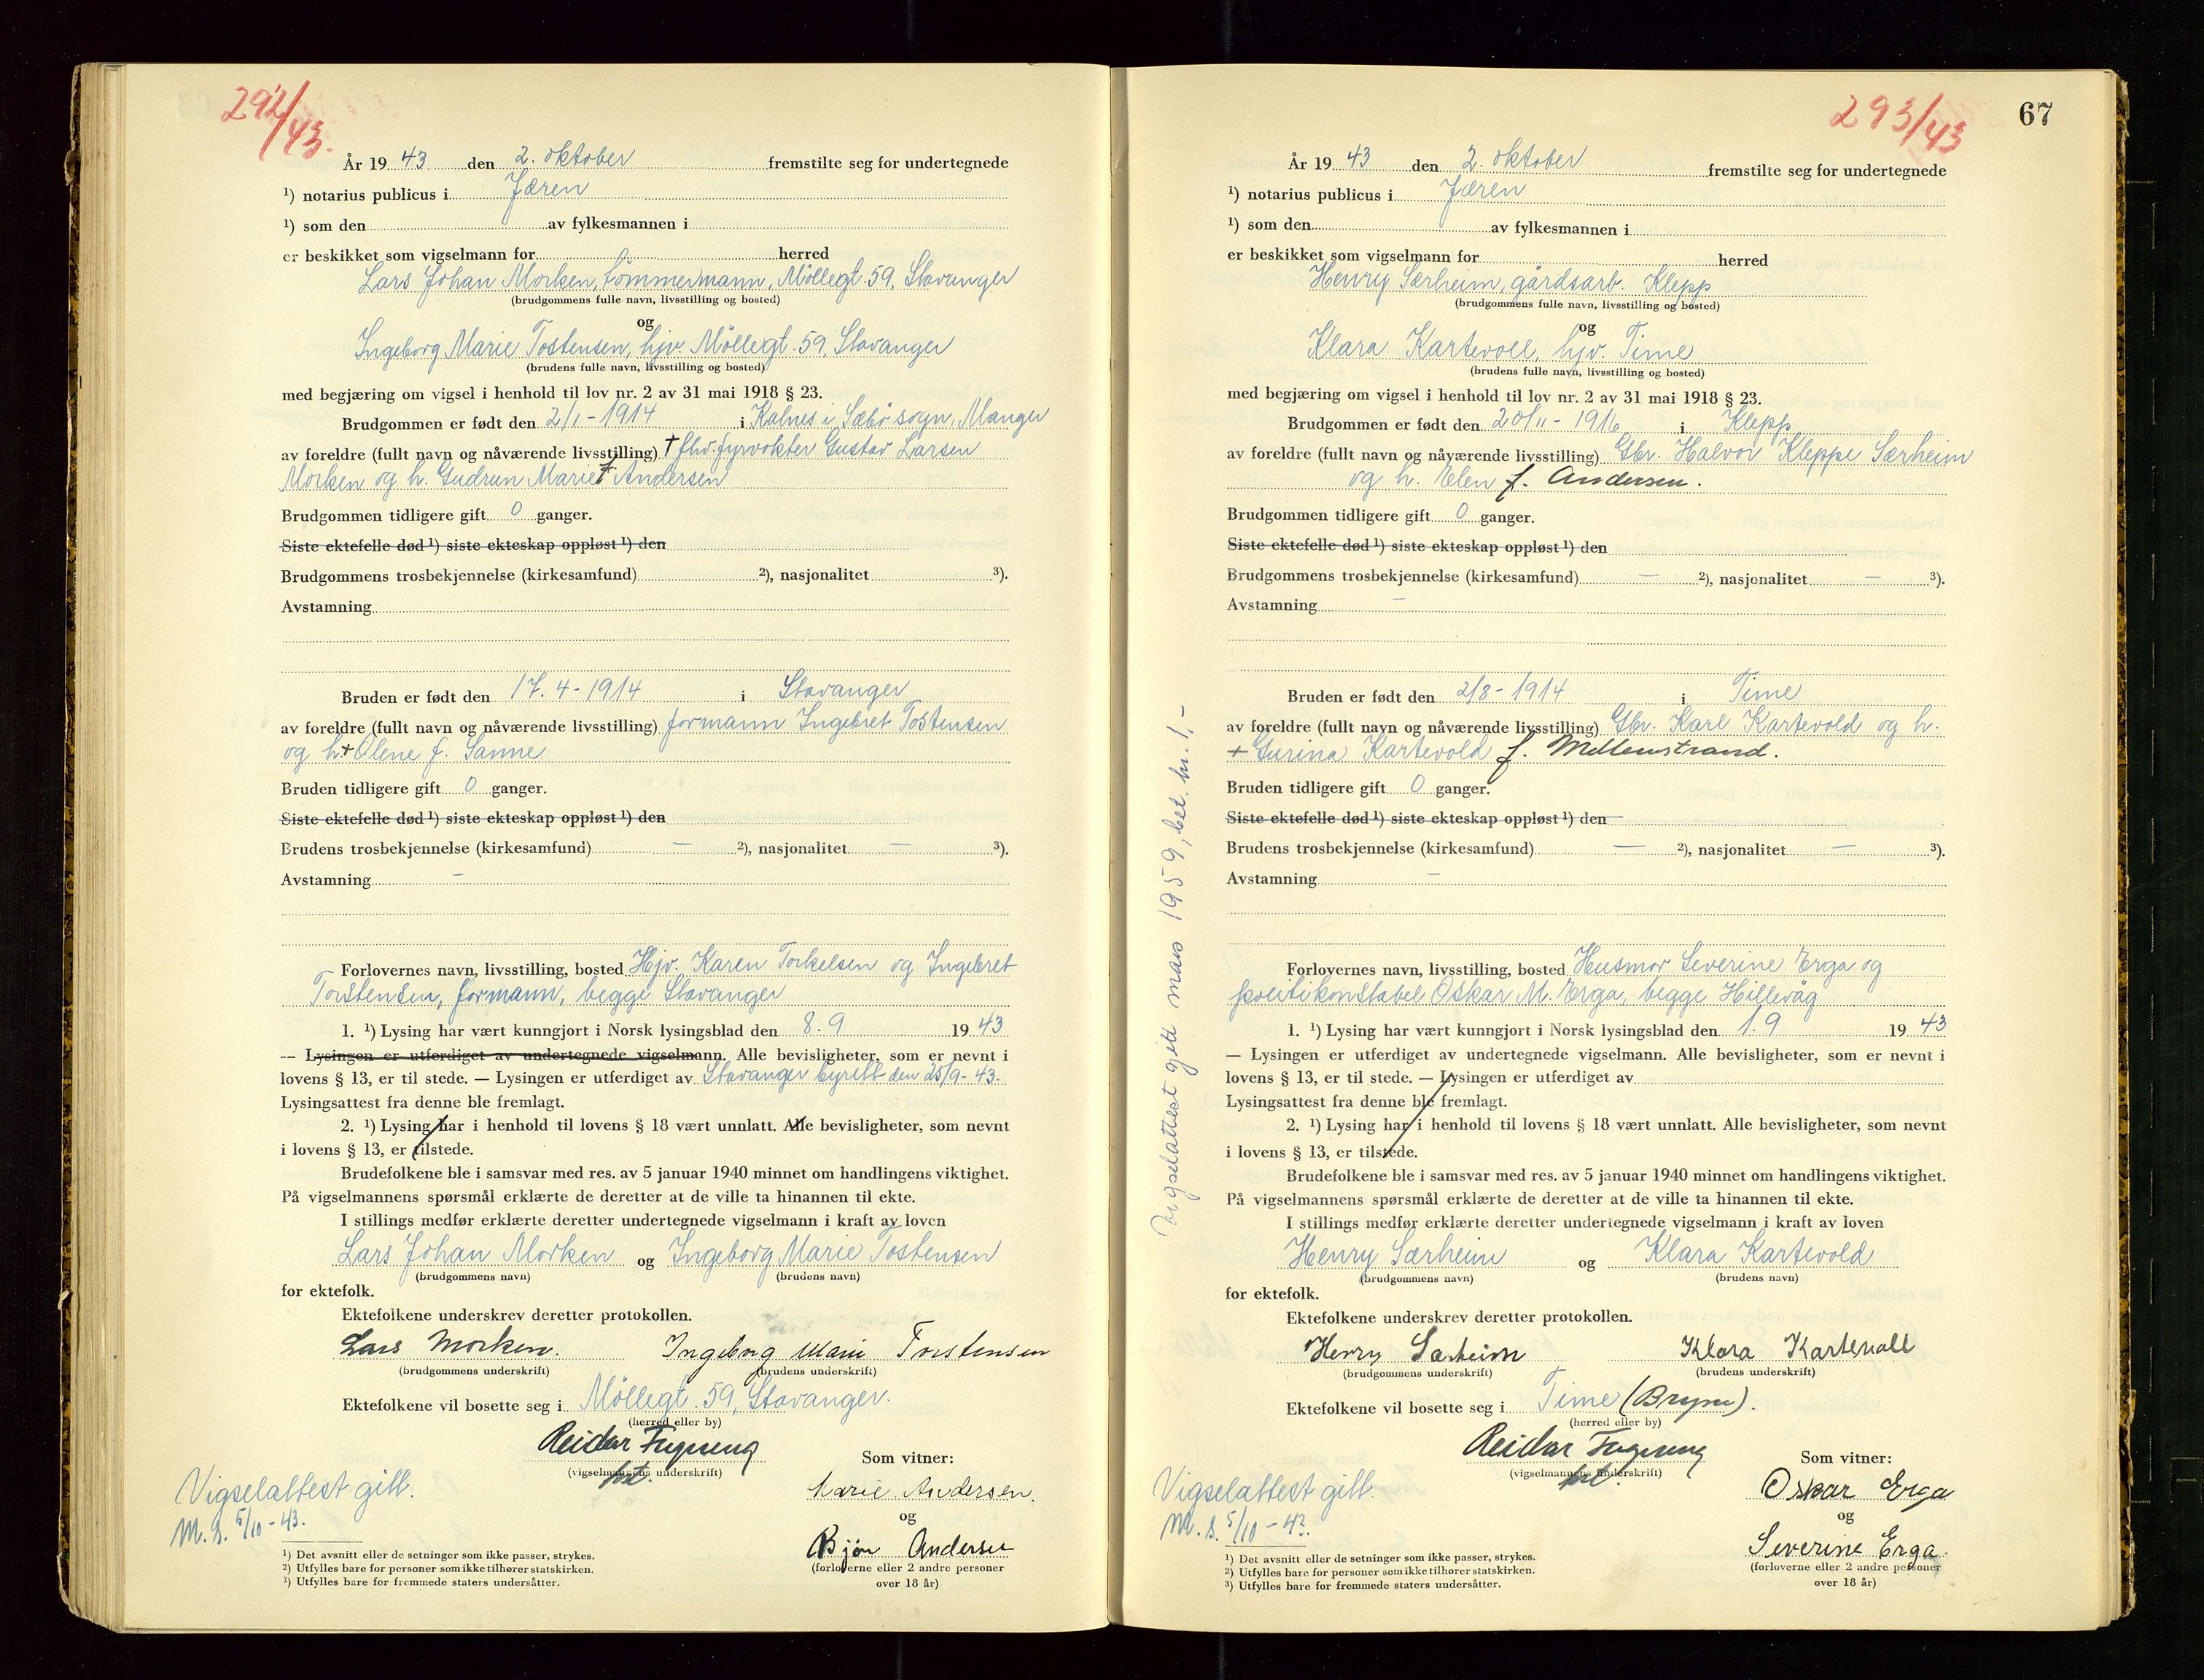 292/43.
År 19 43 den 2. oktober fremstilte seg for undertegnede
¹) notarius publicus i Jæren
¹) som den av fylkesmannen i
er beskikket som vigselmann for herred
Lars Johan Morken, tömmermann, Möllegt. 59, Stavanger
(brudgommens fulle navn, livsstilling og bosted)
og
Ingeborg Marie Tostensen, hjv. Möllegt. 59, Stavanger
(brudens fulle navn, livsstilling og bosted)
med begjæring om vigsel i henhold til lov nr. 2 av 31 mai 1918 § 23.
Brudgommen er født den 2/1 - 1914 i Kalnes i Sæbö sogn, Manger
av foreldre (fullt navn og nåværende livsstilling) † fhv. fyrvokter Gustav Larsen
Morken og h. Gudrun Marie f. Andersen
Brudgommen tidligere gift 0 ganger.
Siste ektefelle død ¹) siste ekteskap oppløst ¹) den
Brudgommens trosbekjennelse (kirkesamfund) ²), nasjonalitet ³).
Avstamning
Bruden er født den 17. 4 - 1914 i Stavanger
av foreldre (fullt navn og nåværende livsstilling) formann Ingebret Tostensen
og h. + Olene f. Sanne
Bruden tidligere gift 0 ganger.
Siste ektefelle død ¹) siste ekteskap oppløst ¹) den
Brudens trosbekjennelse (kirkesamfund) — ²), nasjonalitet — ³).
Avstamning —
Forlovernes navn, livsstilling, bosted Hjv. Karen Torkelsen og Ingebret
Torstensen, formann, begge Stavanger
1. ¹) Lysing har vært kunngjort i Norsk lysingsblad den 8. 9 19 43
— Lysingen er utferdiget av undertegnede vigselmann. Alle bevisligheter, som er nevnt i
lovens § 13, er til stede. — Lysingen er utferdiget av Stavanger byrett den 25/9 - 43.
Lysingsattest fra denne ble fremlagt.
2. ¹) Lysing har i henhold til lovens § 18 vært unnlatt. Alle bevisligheter, som nevnt
i lovens § 13, er tilstede.
Brudefolkene ble i samsvar med res. av 5 januar 1940 minnet om handlingens viktighet.
På vigselmannens spørsmål erklærte de deretter at de ville ta hinannen til ekte.
I stillings medfør erklærte deretter undertegnede vigselmann i kraft av loven
Lars Johan Morken og Ingeborg Marie Tostensen
(brudgommens navn) (brudens navn)
for ektefolk.
Ektefolkene underskrev deretter protokollen.
Lars Morken. Ingeborg Marie Torstensen
(brudgommens underskrift) (brudens underskrift)
Ektefolkene vil bosette seg i Möllegt. 59, Stavanger.
(herred eller by)
Reidar
(vigselmannens underskrift)
Som vitner:
Marie Andersen.
og
Bjön Andersen
(forloverne eller 2 andre personer
over 18 år)
Vigselattest gitt.
M. S. 5/10 - 43.
¹) Det avsnitt eller de setninger som ikke passer, strykes.
²) Utfylles bare for personer som ikke tilhører statskirken.
³) Utfylles bare for fremmede staters undersåtter.
293/43
67
År 19 43 den 2. oktober fremstilte seg for undertegnede
¹) notarius publicus i Jæren
¹) som den av fylkesmannen i
er beskikket som vigselmann for herred
Henry Særheim, gårdsarb. Klepp
(brudgommens fulle navn, livsstilling og bosted)
og
Klara Kartevoll, hjv. Time
(brudens fulle navn, livsstilling og bosted)
med begjæring om vigsel i henhold til lov nr. 2 av 31 mai 1918 § 23.
Brudgommen er født den 20/11 - 1916 i Klepp
av foreldre (fullt navn og nåværende livsstilling) Gbr. Halvor Kleppe Særheim
og h. Elen f. Andersen.
Brudgommen tidligere gift 0 ganger.
Siste ektefelle død ¹) siste ekteskap oppløst ¹) den
Brudgommens trosbekjennelse (kirkesamfund) — ²), nasjonalitet — ³).
Avstamning —
Bruden er født den 2/8 - 1914 i Time
av foreldre (fullt navn og nåværende livsstilling) Gbr. Karl Kartevold og h.
+ Gurina Kartevold f. Mellemstrand.
Bruden tidligere gift 0 ganger.
Siste ektefelle død ¹) siste ekteskap oppløst ¹) den
Brudens trosbekjennelse (kirkesamfund) — ²), nasjonalitet — ³).
Avstamning —
Forlovernes navn, livsstilling, bosted Husmor Severine Erga og
politikonstabel Oskar M. Erga, begge Hillevåg
1. ¹) Lysing har vært kunngjort i Norsk lysingsblad den 1. 9 19 43
— Lysingen er utferdiget av undertegnede vigselmann. Alle bevisligheter, som er nevnt i
lovens § 13, er til stede. — Lysingen er utferdiget av
Lysingsattest fra denne ble fremlagt.
2. ¹) Lysing har i henhold til lovens § 18 vært unnlatt. Alle bevisligheter, som nevnt
i lovens § 13, er tilstede.
Brudefolkene ble i samsvar med res. av 5 januar 1940 minnet om handlingens viktighet.
På vigselmannens spørsmål erklærte de deretter at de ville ta hinannen til ekte.
I stillings medfør erklærte deretter undertegnede vigselmann i kraft av loven
Henry Særheim og Klara Kartevold
(brudgommens navn) (brudens navn)
for ektefolk.
Ektefolkene underskrev deretter protokollen.
Henry Særheim Klara Kartevoll
(brudgommens underskrift) (brudens underskrift)
Ektefolkene vil bosette seg i Time (Bryne).
(herred eller by)
Reidar
(vigselmannens underskrift)
Som vitner:
Oskar Erga
og
Severine Erga
(forloverne eller 2 andre personer
over 18 år)
Vigselattest gitt.
M. S. 5/10 - 43.
¹) Det avsnitt eller de setninger som ikke passer, strykes.
²) Utfylles bare for personer som ikke tilhører statskirken.
³) Utfylles bare for fremmede staters undersåtter.
Vigselattest gitt mars 1959, bet. kr. 1,-